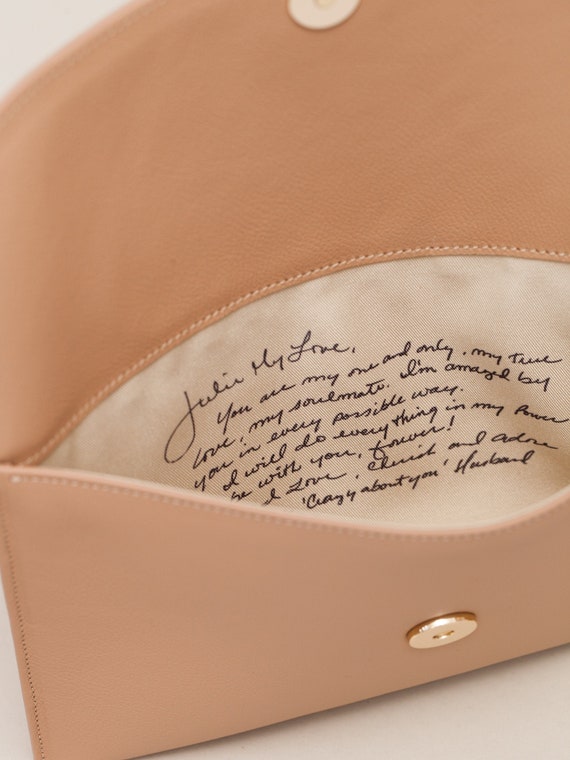 Julie My Love,
You are my one and only, my true
love, my soulmate. I'm amazed by
you in every possible way.
I will do everything in my Power
be with you, forever!
I Love, Cherish and Adore
'Crazy about you' Husband